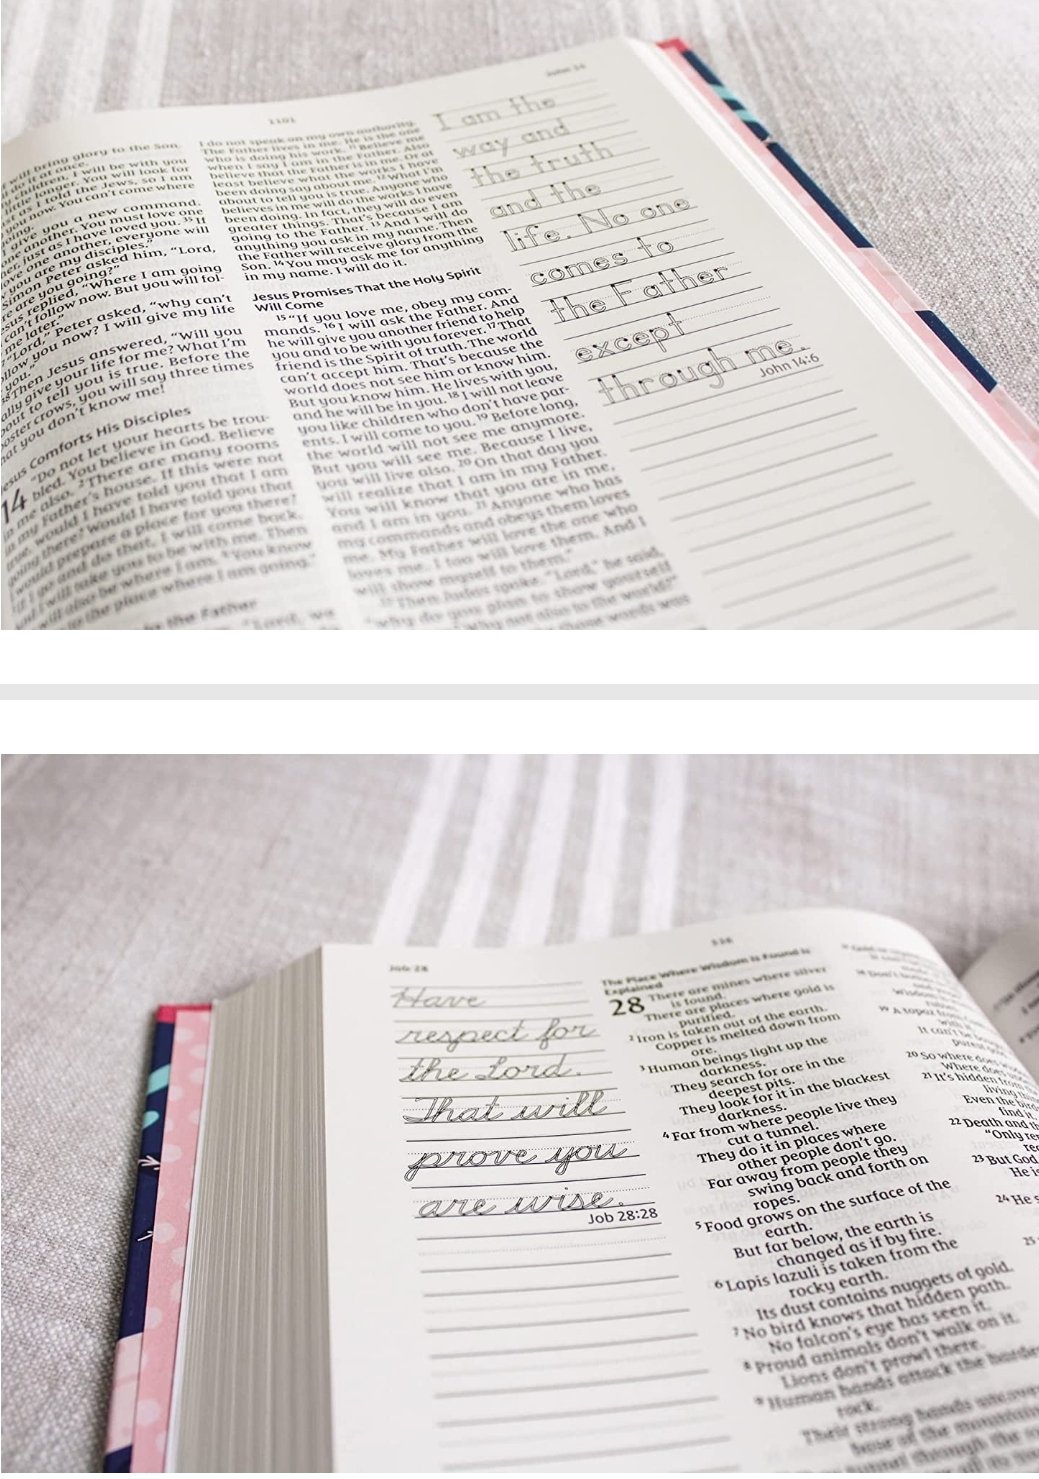 1101
John 14
will bring glory to the Son.
do it at once.
children. I will be with you
little longer. You will look for
just as I told the Jews, so I am
you now. You can't come where
going.
give you a new command.
one another. You must love one
other, just as I have loved you. 35 If
love one another, everyone will
you are my disciples."
Simon Peter asked him, "Lord,
are you going?"
Jesus replied, "Where I am going
can't follow now. But you will fol-
me later."
"Lord," Peter asked, "why can't
follow you now? I will give my life
you."
Then Jesus answered, "Will you
ally give your life for me? What I'm
about to tell you is true. Before the
rooster crows, you will say three times
that you don't know me!
Jesus Comforts His Disciples
14 "Do not let your hearts be trou-
bled. You believe in God. Believe
in me also. 2 There are many rooms
in my Father's house. If this were not
true, would I have told you that I am
going there? Would I have told you that
would prepare a place for you there?
If I go and do that, I will come back.
and I will take you to be with me. Then
will also be where I am. 4 You know
to the place where I am going."
to the Father
"Lord, we
I do not speak on my own authority.
The Father lives in me. He is the one
who is doing his work. 11 Believe me
when I say I am in the Father. Also
believe that the Father is in me. Or at
least believe what the works I have
been doing say about me. 12 What I'm
about to tell you is true. Anyone who
believes in me will do the works I have
been doing. In fact, they will do even
greater things. That's because I am
going to the Father. 13 And I will do
anything you ask in my name. Then
the Father will receive glory from the
Son. 14 You may ask me for anything
in my name. I will do it.
Jesus Promises That the Holy Spirit
Will Come
15 "If you love me, obey my com-
mands. 16 I will ask the Father. And
he will give you another friend to help
you and to be with you forever. 17 That
friend is the Spirit of truth. The world
can't accept him. That's because the
world does not see him or know him.
But you know him. He lives with you,
and he will be in you. 18 I will not leave
you like children who don't have par-
ents. I will come to you. 19 Before long,
the world will not see me anymore.
But you will see me. Because I live,
you will live also. 20 On that day you
will realize that I am in my Father.
You will know that you are in me,
and I am in you. 21 Anyone who has
my commands and obeys them loves
me. My Father will love the one who
loves me. I too will love them. And I
will show myself to them."
22 Then Judas spoke. "Lord," he said,
"why do you plan to show yourself
why not also to the world?"
those words was
I am the
way and
the truth
and the
life. No one
comes to
the Father
except
through me.
John 14:6
Job 28
Have
respect for
the Lord.
That will
prove you
are wise.
Job 28:28
The Place Where Wisdom Is Found Is
Explained
28 There are mines where silver
is found.
There are places where gold is
purified.
2 Iron is taken out of the earth.
Copper is melted down from
ore.
3 Human beings light up the
darkness.
They search for ore in the
deepest pits.
They look for it in the blackest
darkness.
4 Far from where people live they
cut a tunnel.
They do it in places where
other people don't go.
Far away from people they
swing back and forth on
ropes.
5 Food grows on the surface of the
earth.
But far below, the earth is
changed as if by fire.
6 Lapis lazuli is taken from the
rocky earth.
Its dust contains nuggets of gold.
7 No bird knows that hidden path.
No falcon's eye has seen it.
8 Proud animals don't walk on it.
Lions don't prowl there.
9 Human hands attack the hardest
rock.
Their strong hands uncover
base of the mountains
tunnel through the
19 A topaz from
with it.
It can't be bought
purest gold.
20 So where does
Where does
21 It's hidden from
living thing
Even the birds
find it.
22 Death and the
"Only
23 But God
He is
24 He s
25